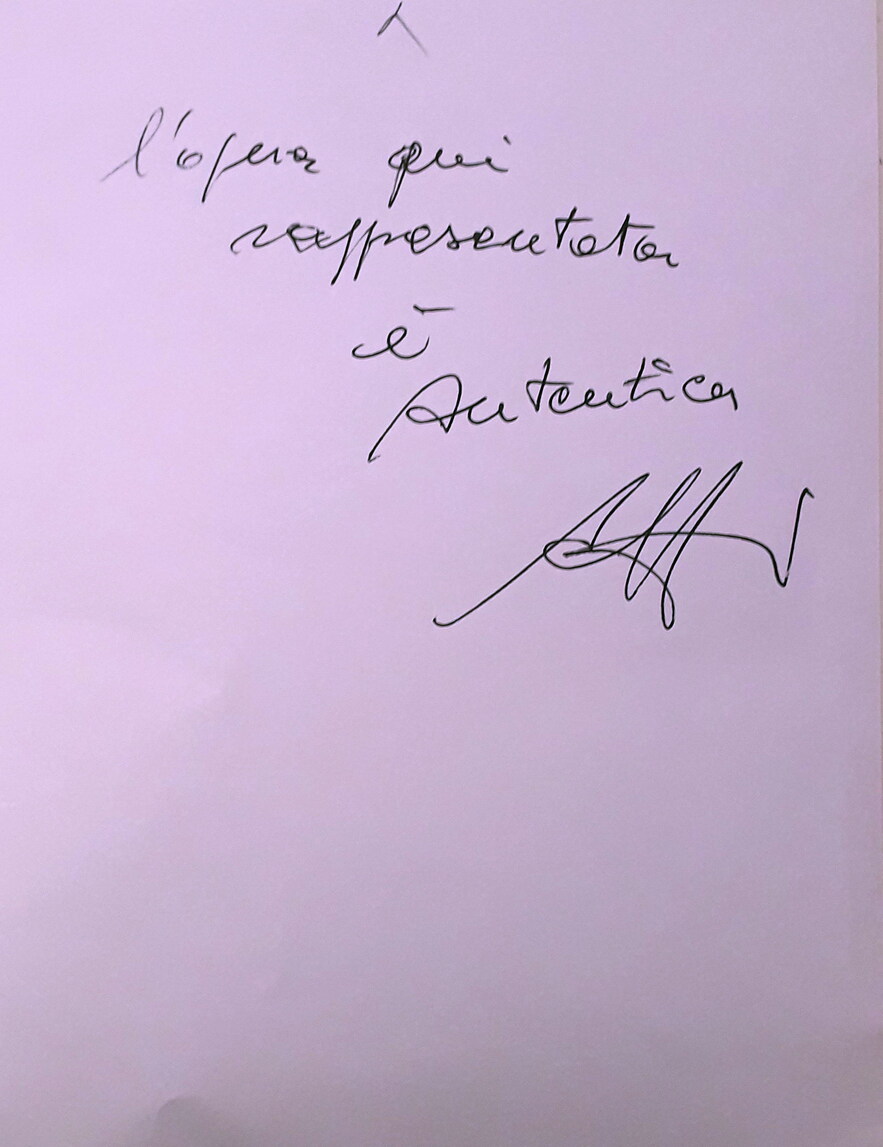 l'opera qui
rappresentata
è
Autentica